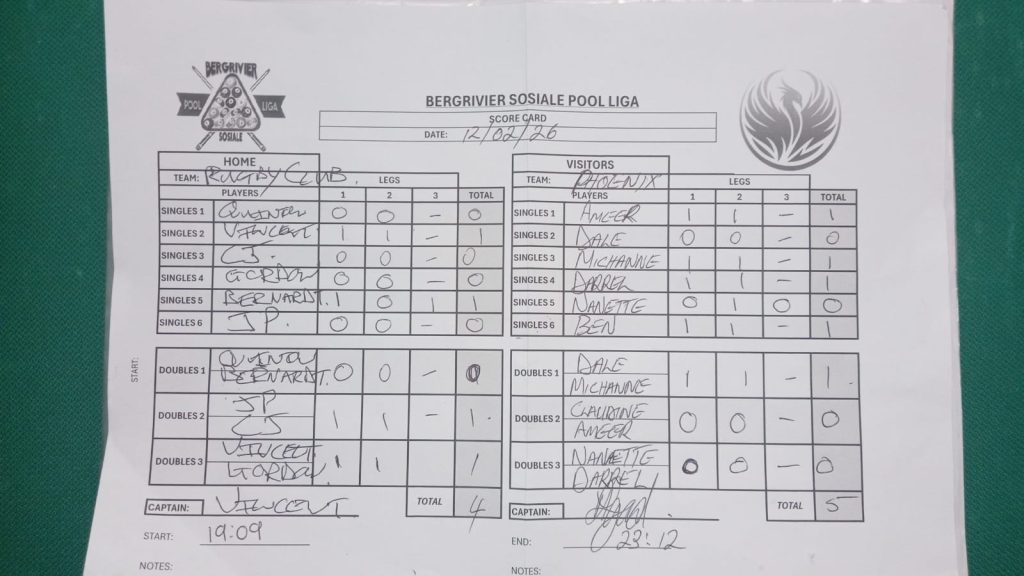 BERGRIVIER
POOL LIGA
SOSIALE
BERGRIVIER SOSIALE POOL LIGA
SCORE CARD
DATE: 12/02/26
HOME
TEAM: RUGBY CLUB. LEGS
PLAYERS 1 2 3 TOTAL
SINGLES 1 QUINTON 0 0 – 0
SINGLES 2 VINCENT 1 1 – 1
SINGLES 3 CJ. 0 0 – 0
SINGLES 4 GORDON 0 0 – 0
SINGLES 5 BERNARDT. 1 0 1 1
SINGLES 6 JP. 0 0 – 0
START:
DOUBLES 1 QUINTON 0 0 – 0
BERNARDT.
DOUBLES 2 JP 1 1 – 1.
CJ
DOUBLES 3 VINCENT 1 1 1
GORDON
CAPTAIN: VINCENT TOTAL 4
START: 19:09
NOTES:
VISITORS
TEAM: PHOENIX LEGS
PLAYERS 1 2 3 TOTAL
SINGLES 1 AMEER 1 1 – 1
SINGLES 2 DALE 0 0 – 0
SINGLES 3 MICHANNE 1 1 – 1
SINGLES 4 DARREL 1 1 – 1
SINGLES 5 NANETTE 0 1 0 0
SINGLES 6 BEN 1 1 – 1
DOUBLES 1 DALE 1 1 – 1.
MICHANNE
DOUBLES 2 CLAUDINE 0 0 – 0
AMEER
DOUBLES 3 NANETTE 0 0 – 0
DARREL
CAPTAIN: TOTAL 5
END: 23:12
NOTES: